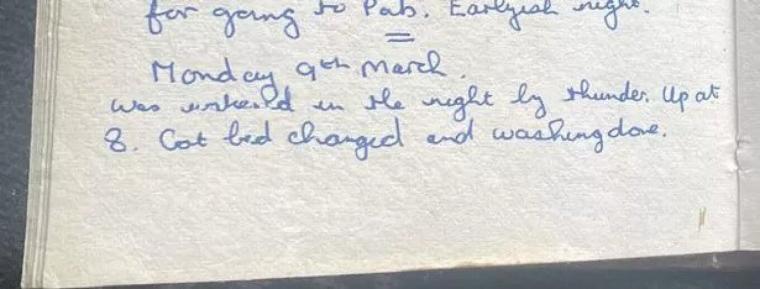 for going to Pab. Earlyish night.
Monday 9th March.
Was wakend in the night by thunder. Up at
8. Got bed changed and washing done.